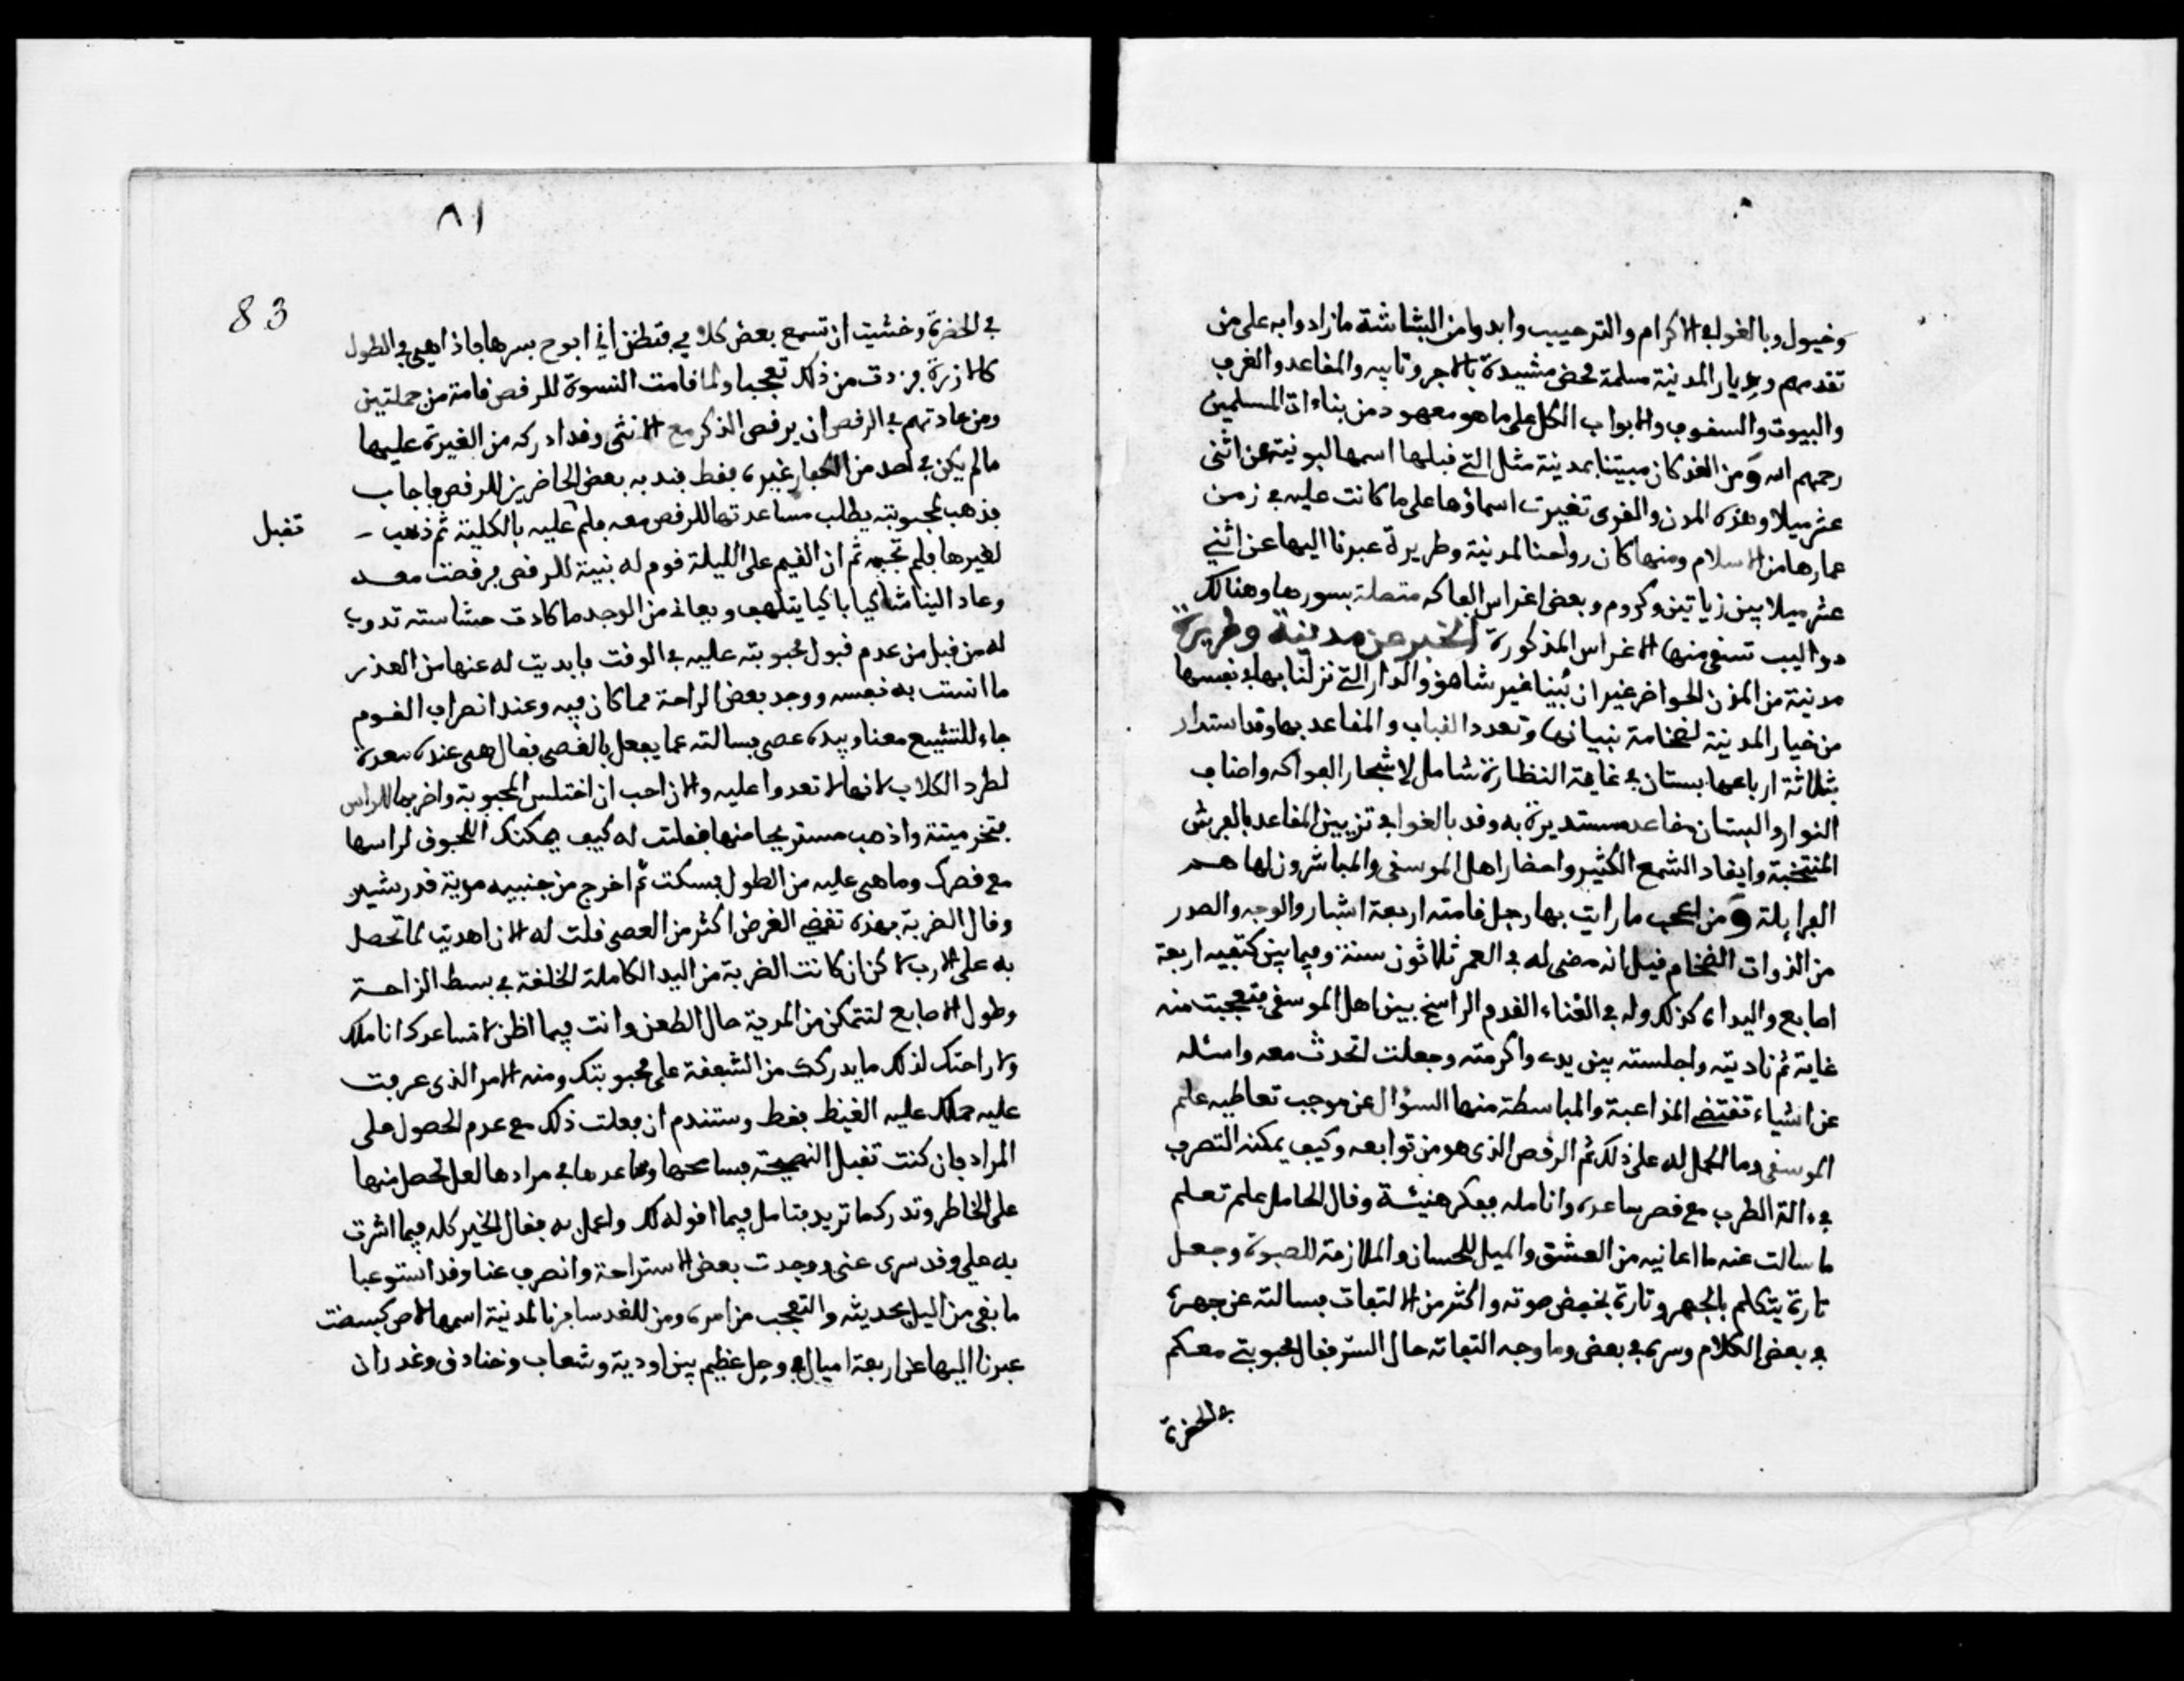 وخيول وبالغوا في الاكرام والترحييب وابدوا من البشاشة ما زادوا به على من
تقدمهم وديار المدينة مسلمة محض مشيدة بالاجر وتابيه والمقاعد والغرف
والبيوت والسقوف والابواب الكل على ما هو معهود من بناءات المسلمين
رحمهم الله ومن الغد كان مبيتنا بمدينة مثل التي قبلها اسمها البونية عن اثنى
عشر ميلا وهذه المدن والقرى تغيرت اسماؤها على ما كانت عليه في زمن
عمارها من الاسلام ومنها كان رواحنا لمدينة وطريرة عبرنا اليها عن اثني
عشر ميلا بين زياتين وكروم وبعض اغراس الفاكه متصلة بسورها وهنالك
دواليب تسقى منها الاغراس المذكورة الخبر عن مدينة وطريرة
مدينة من المدن الحواضر غير ان بُينا غير شاهق والدار التي نزلنا بها في نفسها
من خيار المدينة لضخامة بنيانها وتعدد القباب والمقاعد بها وقد استدار
بثلاثة ارباعها بستان في غاية النظارة شامل لاشجار الفواكه واصناف
النوار والبستان مقاعد مستديرة به وقد بالغوا في تزيين المقاعد بالفرش
المنتخبة وايقاد الشمع الكثير واحضار اهل الموسقى والمباشرون لها هم
الفرايلة ومن اعجب ما رايت بها رجل قامته اربعة اشبار والوجه والصدر
من الذوات الضخام قيل انه مضى له في العمر ثلاثون سنة وفيما بين كتفيه اربعة
اصابع واليدان كذلك وله في الغناء القدم الراسخ بين اهل الموسقى فتعجبت منه
غاية ثم ناديته واجلسته بين يدي واكرمته وجعلت اتحدث معه واسئله
عن اشياء تقتضي المذاعبة والمباسطة منها السؤال عن موجب تعاطيه علم
الموسقى وما الحمل له على ذلك ثم الرقص الذي هو من توابعه وكيف يمكنه التصرف
في ءالة الطرب مع قصر ساعده وانامله ففكر هنيئة وقال الحامل علم تعلم
ما سالت عنه ما اعانيه من العشق والميل للحسان والملازمة للصبوة وجعل
تارة يتكلم بالجهر وتارة بخفض صوته واكثر من الالتفات فسالته عن جهره
في بعض الكلام وسره في بعض وما وجه التفاته حال السّر فقال محبوبتي معكم
في الحضرة
٨١
83
في الحضرة وخشيت ان تسمع بعض كلامي فتظن اني ابوح بسرها فاذا هي في الطول
كالازرة فزدت من ذلك تعجبا ولما قامت النسوة للرقص قامة من جملتين
ومن عادتهم في الرقص ان يرقص الذكر مع الانثى وقد ادركه من الغيرة عليها
ما لم يكن في احد من الكبار غيره فقط فندبه بعض الحاضرين للرقص فاجاب
فذهب لمحبوبته يطلب مساعدتها للرقص معه فلم عليه بالكلية ثم ذهب -
تقبل
لغيرها فلم تجبه ثم ان القيم على الليلة قوم له بنية للرقص فرقصت معه
وعاد الينا شاكيا باكيا يتلهف ويعانى من الوجد ما كادت حشاسته تدوب
له من قبل من عدم قبول محبوبته عليه في الوقت فابديت له عنها من العذر
ما انست به نفسه ووجد بعض الراحة مما كان فيه وعند انصراف القوم
جاء للتشييع معنا وبيده عصى فسالته عما يفعل بالقصى فقال هي عنده معدة
لطرد الكلاب لانها لا تعدوا عليه والان احب ان اختلس المحبوبة واضربها للراس
فتخر ميتة واذهب مستريحا منها فقلت له كيف يمكنك اللحوق لراسها
مع قصرك وما هي عليه من الطول فسكت ثم اخرج من جنبيه مدية قدر شبر
وقال الضربة بهذه تقضي الغرض اكثر من العصى قلت له الان اهديت لما تحصل
به على الارب لاكن ان كانت الضربة من اليد الكاملة الخلقة في بسط الراحة
وطول الاصابع لتتمكن من المدية حال الطعن وانت فيما اظن لا تساعدك اناملك
ولا راحتك لذلك ما يدركك من الشفقة على محبوبتك ومنه الامر الذي عرفت
عليه حملك عليه الغيظ فقط وستندم ان فعلت ذلك مع عدم الحصول على
المراد فان كنت تقبل النصيحة فسامحها وساعدها في مرادها لعل تحصل منها
على الخاطر وتدرك ما تريد فتامل فيما اقوله لك واعمل به فقال الخير كله فيما اشرت
به علي وقد سرى عنى ووجدت بعض الاستراحة وانصرف عنا وقد استوعبا
ما بقى من اليل بحديثه والتعجب من امره ومن للغد سافرنا لمدينة اسمها
عبرنا اليها عن اربعة اميال في وحل عظيم بين اودية وشعاب وخنادق وغدران